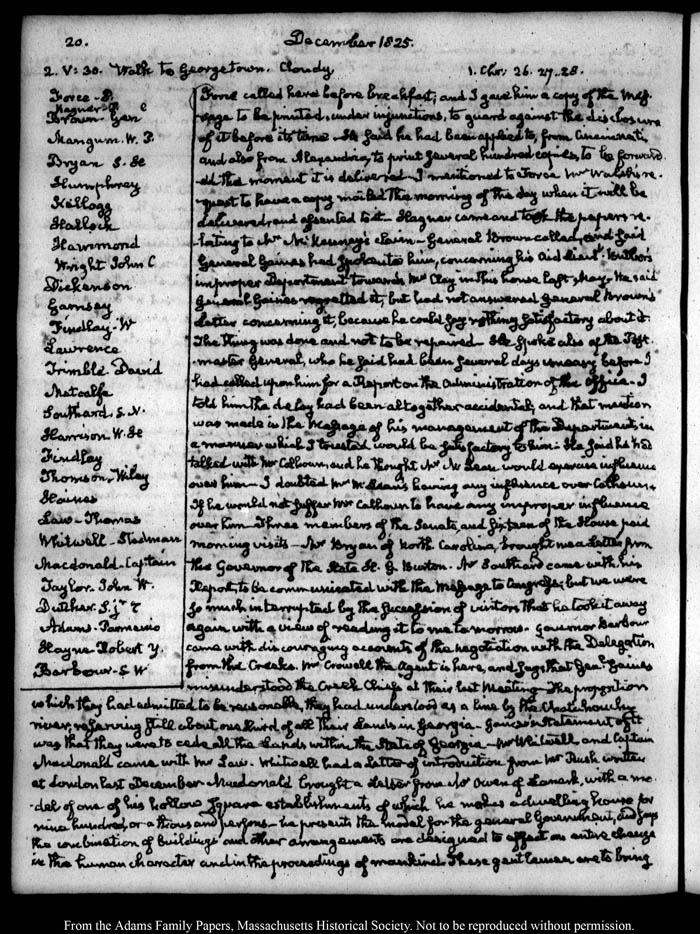 20.
December 1825.
2. V: 30. Walk to Georgetown. Cloudy
1. Chr: 26. 27..28.
Force - P.
Hagner - P.
Brown Gen
Mangum. W. P.
Bryan J. H
Humphrey
Kellogg
Hallock
Hammond
Wright John C
Dickenson
Garnsey
Findlay - W
Lawrence
Trimble David
Metcalfe
Southard S. N.
Harrison. W. H
Findlay
Thomson - Wiley
Haines
Law - Thomas
Whitwell - Stedman
Macdonald - Captain
Taylor. John W.
Dutcher. S. jr
Adams Parmenio
Hayne Robert Y.
Barbour - S W
Force called here before breakfast; and I gave him a copy of the Mes-
sage to be printed, under injunctions, to guard against the disclosure
of it before its time - He said he had been applied to, from Cincinnati
and also from Alexandria, to print several hundred copies, to be forward-
ed the moment it is delivered - I mentioned to Force Mr Walsh's re-
quest to have a copy mailed the morning of the day when it will be
delivered; and assented to it - Hagner came and took the papers re-
lating to Mr McKenney's claim - General Brown called, and said
General Gaines had spoken to him, concerning his Aid Lieut. Butler's
improper Deportment towards Mr Clay in this house last May - He said
General Gaines regretted it, but had not answered General Brown's
Letter concerning it, because he could say nothing satisfactory about it.
The thing was done and not to be repaired - He spoke also of the Post-
master General, who he said had been several days uneasy before I
had called upon him for a Report on the administration of the office - I
told him the delay had been altogether accidental; and that mention
was made in the Message of his management of the Department, in
a manner which I trusted would be satisfactory to him - He said he had
talked with Mr Calhoun, and he thought Mr McLean would exercise influence
over him - I doubted Mr McLean's having any influence over Calhoun.
If he would not suffer Mr Calhoun to have any improper influence
over him - Three members of the Senate, and sixteen of the House paid
morning visits - Mr Bryan of North Carolina, brought me a Letter from
the Governor of the State H. G. Burton. Mr Southard came with his
Report, to be communicated with the Message to Congress; but we were
so much interrupted by the succession of visitors that he took it away
again with a view of reading it to me to-morrow. Governor Barbour
came with discouraging accounts of the negotiation with the Delegation
from the Creeks. Mr Crowell the Agent is here, and says that Genl. Gaines
misunderstood the Creek Chiefs at their last Meeting - The proposition
which they had admitted to be reasonable, they had understood as a line by the Chatahouchy
river, reserving still about one third of all their Lands in Georgia - Gaines's statement of it
was that they were to cede all the Lands within the State of Georgia - Mr Whitwell and Captain
Macdonald came with Mr Law. Whitwell had a Letter of introduction from Mr Rush written
at London last December Macdonald brought a Letter from Mr Owen of Lanark, with a mo-
del of one of his hollow square establishments of which he makes a dwelling house for
nine hundred or a thousand persons - he presents the model for the general Government, and says
the combination of buildings and other arrangements are designed to effect an entire change
in the human character and in the proceedings of mankind. These gentlemen are to bring
From the Adams Family Papers, Massachusetts Historical Society. Not to be reproduced without permission.